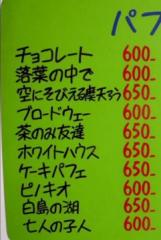 パフ
チョコレート 600-
落葉の中で 600-
空にそびえる摩天ろう 650-
ブロードウェー 600-
茶のお友達 650-
ホワイトハウス 650-
ケーキパフェ 650-
ピノキオ 600-
白鳥の湖 650-
七人の子人 600-